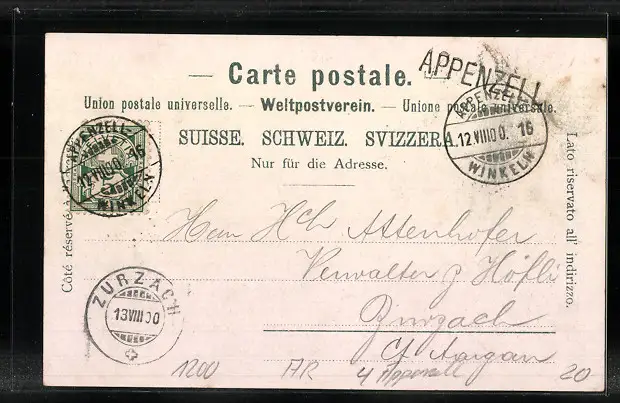 Carte postale.
APPENZELL
Union postale universelle. — Weltpostverein. — Unione postale universale.
SUISSE. SCHWEIZ. SVIZZERA.
Nur für die Adresse.
APPENZELL
12.VIII00. 16
WINKELN
APPENZELL
12.VIII00.
WINKELN
Côté réservé à
Lato riservato all' indirizzo.
Herrn Hch Attenhofer
Verwalter z Höfli
Zurzach
Ct Aargau
ZURZACH
13VIII00
1200 AR 4 Appenzell 20